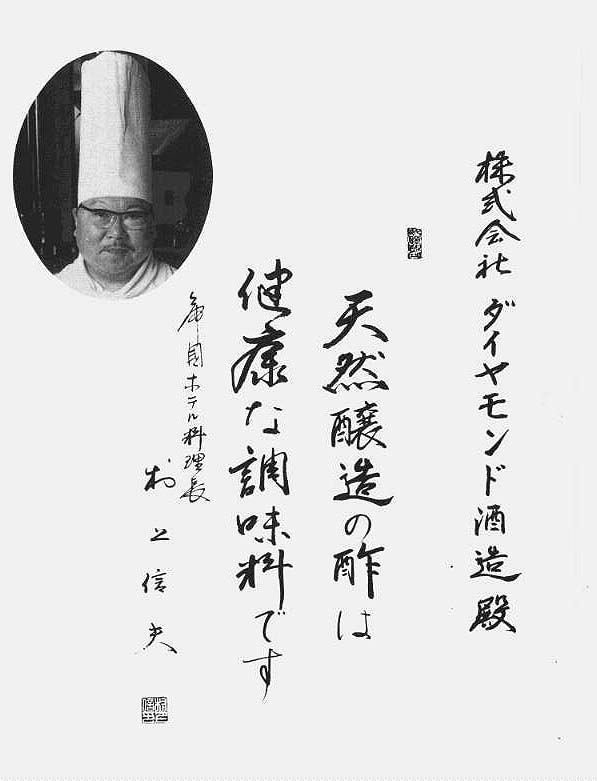 株式会社 ダイヤモンド酒造殿
天然醸造の酢は
健康な調味料です
帝国ホテル料理長
村上信夫